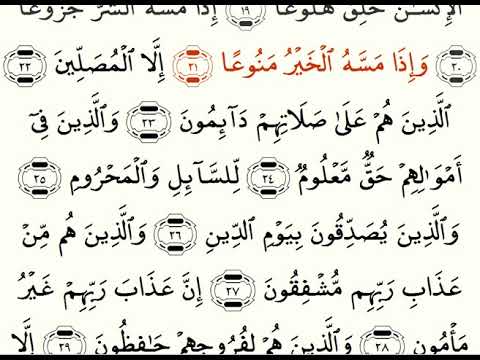 ٱلۡإِنسَٰنَ خُلِقَ هَلُوعًا ١٩ إِذَا مَسَّهُ ٱلشَّرُّ جَزُوعًا
٢٠ وَإِذَا مَسَّهُ ٱلۡخَيۡرُ مَنُوعًا ٢١ إِلَّا ٱلۡمُصَلِّينَ ٢٢
ٱلَّذِينَ هُمۡ عَلَىٰ صَلَاتِهِمۡ دَآئِمُونَ ٢٣ وَٱلَّذِينَ فِيٓ
أَمۡوَٰلِهِمۡ حَقّٞ مَّعۡلُومٞ ٢٤ لِّلسَّآئِلِ وَٱلۡمَحۡرُومِ ٢٥
وَٱلَّذِينَ يُصَدِّقُونَ بِيَوۡمِ ٱلدِّينِ ٢٦ وَٱلَّذِينَ هُم مِّنۡ
عَذَابِ رَبِّهِم مُّشۡفِقُونَ ٢٧ إِنَّ عَذَابَ رَبِّهِمۡ غَيۡرُ
مَأۡمُونٖ ٢٨ وَٱلَّذِينَ هُمۡ لِفُرُوجِهِمۡ حَٰفِظُونَ ٢٩ إِلَّا